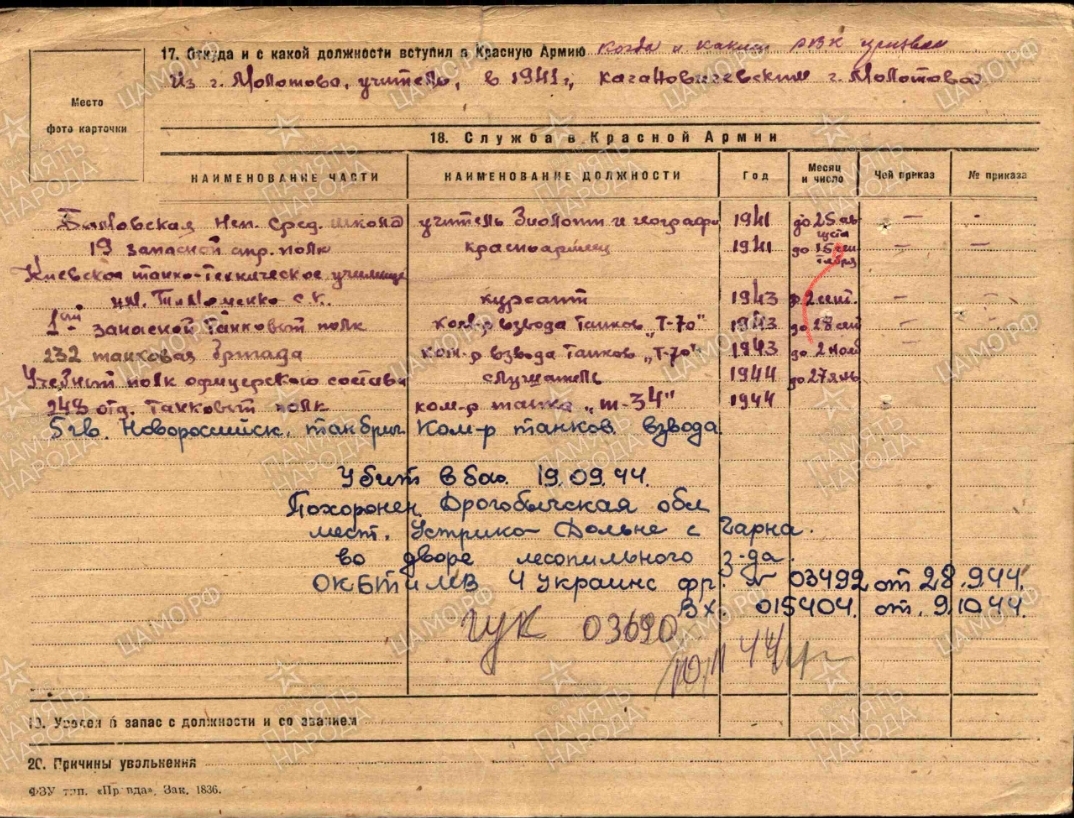 17. Откуда и с какой должности вступил в Красную Армию когда и каким РВК призван
Из г. Молотова, учитель, в 1941 г., Кагановичевским г. Молотова
Место
фото карточки
18. Служба в Красной Армии
НАИМЕНОВАНИЕ ЧАСТИ НАИМЕНОВАНИЕ ДОЛЖНОСТИ Год Месяц и число Чей приказ № приказа
Неп. Сред. школа учитель Биологии и географи 1941 до 25 августа — -
19 запасной стр. полк красноармеец 1941 до 15 — —
Киевское танко-техническое училище
им. Тимошенко С.К. курсант 1943 2 сент. — —
1ый запасной танковый полк ком-р взвода танков „Т-70" 1943 до 28 — —
232 танковая бригада ком-р взвода танков „Т-70" 1943 до 2 нояб — —
Учебный полк офицерского состава слушатель 1944 до 27
248 отд. танковый полк ком-р танка „т-34" 1944
5 гв. Новоросийск. танк бриг. Ком-р танков. взвода
Убит в бою 19.09.44.
Похоронен Дрогобычская обл
мест. Устрико-Дольне с Чарна.
во дворе лесопильного з-да.
ОК БТ и МВ 4 Украинс фр. № 03492 от 28.9.44.
Вх. 015404. от. 9.10.44.
ГУК 03690
10.11 44 г
19. Уволен в запас с должности и со званием
20. Причины увольнения
ФЗУ тип. «Правда». Зак. 1836.
ЦАМО.РФ
ПАМЯТЬ НАРОДА